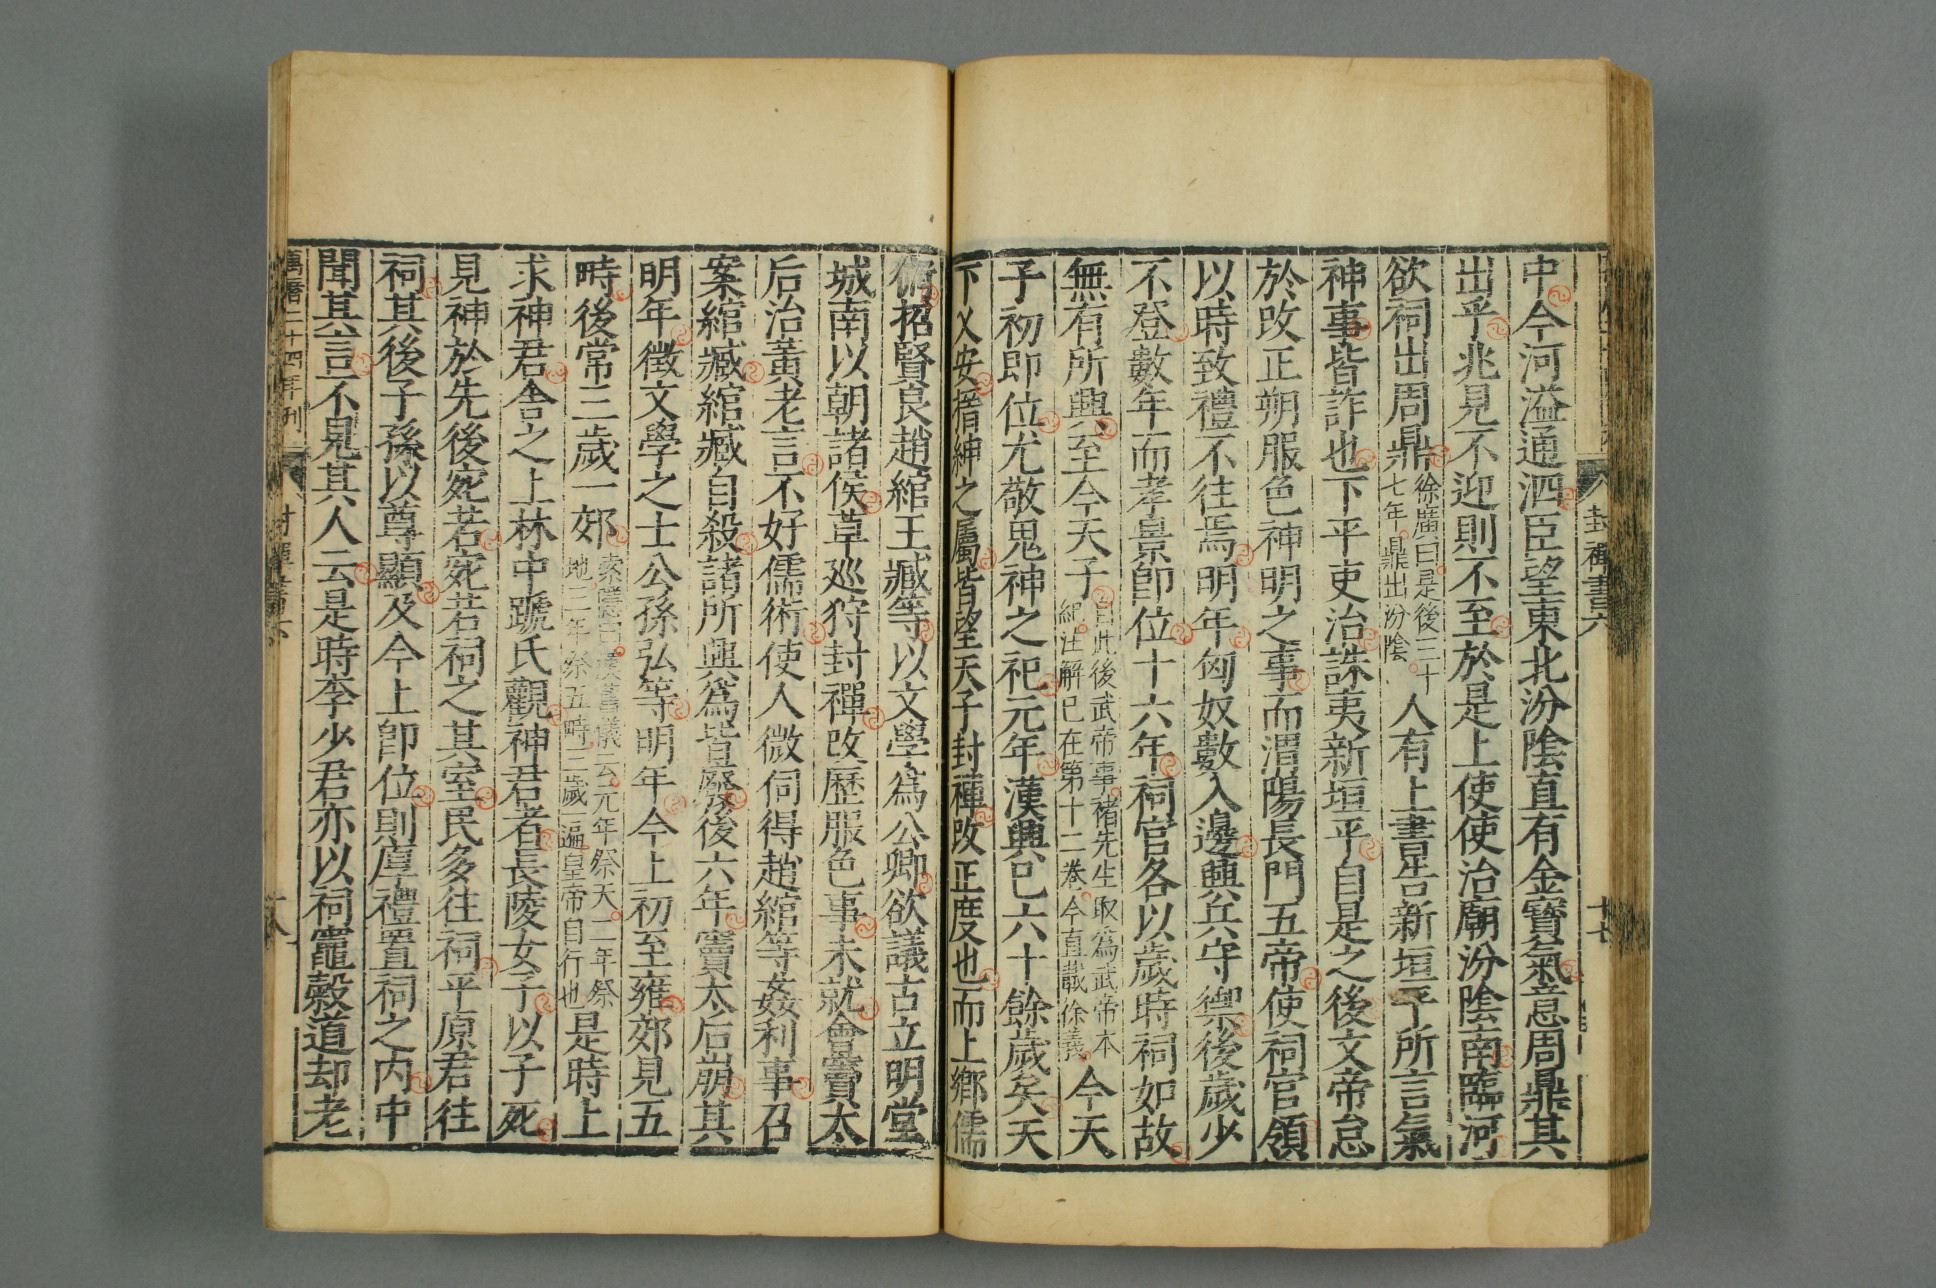 封禪書六
十七
中今河溢通泗臣望東北汾陰直有金寶氣意周鼎其
出乎兆見不迎則不至於是上使使治廟汾陰南臨河
欲祠出周鼎徐廣曰是後三十七年鼎出汾陰人有上書告新垣平所言氣
神事皆詐也下平吏治誅夷新垣平自是之後文帝怠
於改正朔服色神明之事而渭陽長門五帝使祠官領
以時致禮不往焉明年匈奴數入邊興兵守禦後歲少
不登數年而孝景即位十六年祠官各以歲時祠如故
無有所興至今天子自此後武帝事褚先生取為武帝本紀注解已在第十二卷今直載徐義今天
子初即位尤敬鬼神之祀元年漢興已六十餘歲矣天
下乂安搢紳之屬皆望天子封禪改正度也而上鄉儒
術招賢良趙綰王臧等以文學為公卿欲議古立明堂
城南以朝諸侯草巡狩封禪改歷服色事未就會竇太
后治黃老言不好儒術使人微伺得趙綰等姦利事召
案綰臧綰臧自殺諸所興為皆廢後六年竇太后崩其
明年徵文學之士公孫弘等明年今上初至雍郊見五
畤後常三歲一郊索隱曰漢舊儀云元年祭天二年祭地三年祭五畤三歲一遍皇帝自行也是時上
求神君舍之上林中蹏氏觀神君者長陵女子以子死
見神於先後宛若宛若祠之其室民多往祠平原君往
祠其後子孫以尊顯及今上即位則厚禮置祠之內中
聞其言不見其人云是時李少君亦以祠竈穀道却老
萬曆二十四年刊
封禪書六
十八